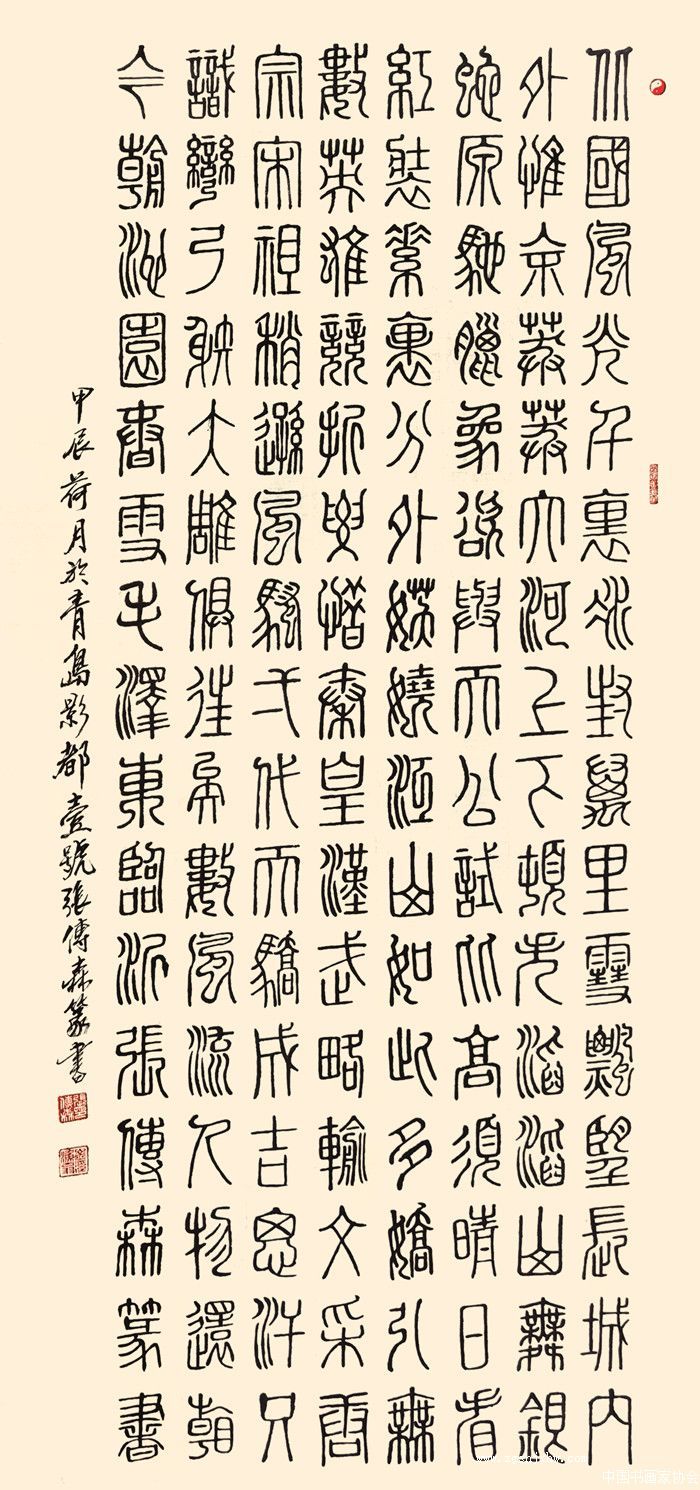 北國風光千裏冰封萬里雪飄望長城內
外惟余莽莽大河上下頓失滔滔山舞銀
蛇原馳臘象欲與天公試比高須晴日看
紅裝素裹分外妖嬈江山如此多嬌引無
數英雄競折腰惜秦皇漢武略輸文采唐
宗宋祖稍遜風騷一代天驕成吉思汗只
識彎弓射大雕俱往矣數風流人物還看
今朝沁園春雪毛澤東臨沂張傳森篆書
甲辰荷月於青島影都壹號張傳森篆書
中国书画家协会